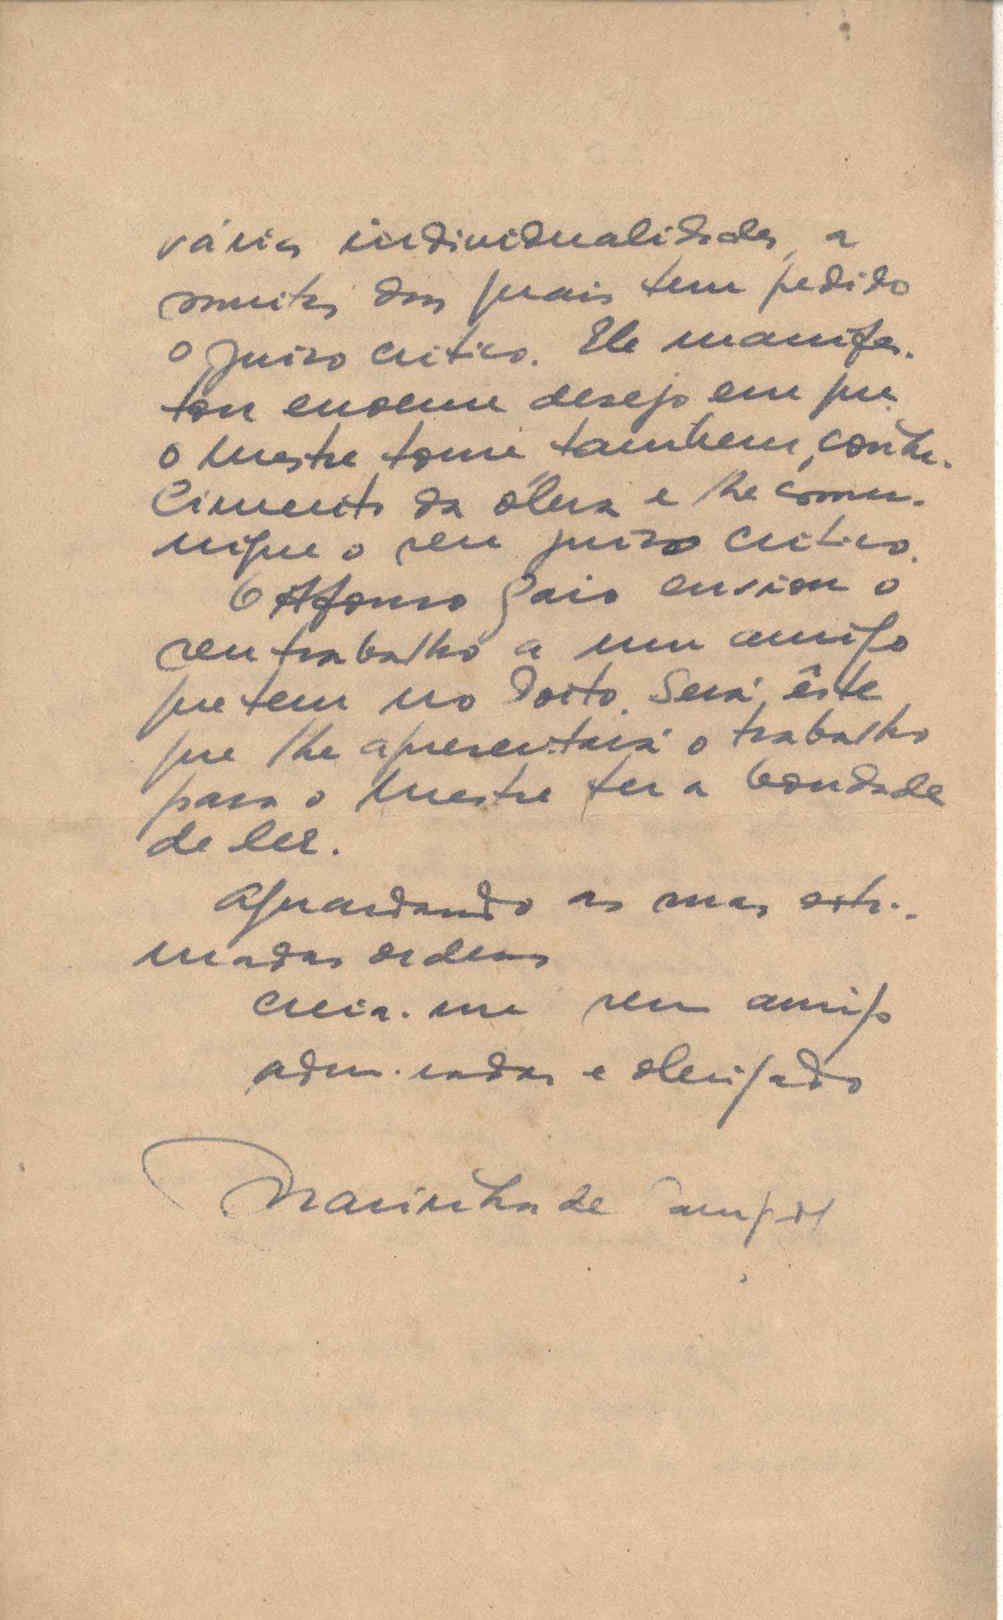 várias individualidades, a
muitas das quais tem pedido
o juizo critico. Ele manifes-
tou enorme desejo em que
o Mestre tome tambem conhe-
cimento da obra e lhe comu-
nique o seu juizo critico.
O Afonso Gaio enviou o
seu trabalho a um amigo
que tem no Porto. Será êste
que lhe apresentará o trabalho
para o Mestre ter a bondade
de ler.
Aguardando as suas esti-
madas ordens
creia-me seu amigo
admirador e obrigado
Marinha de Campos